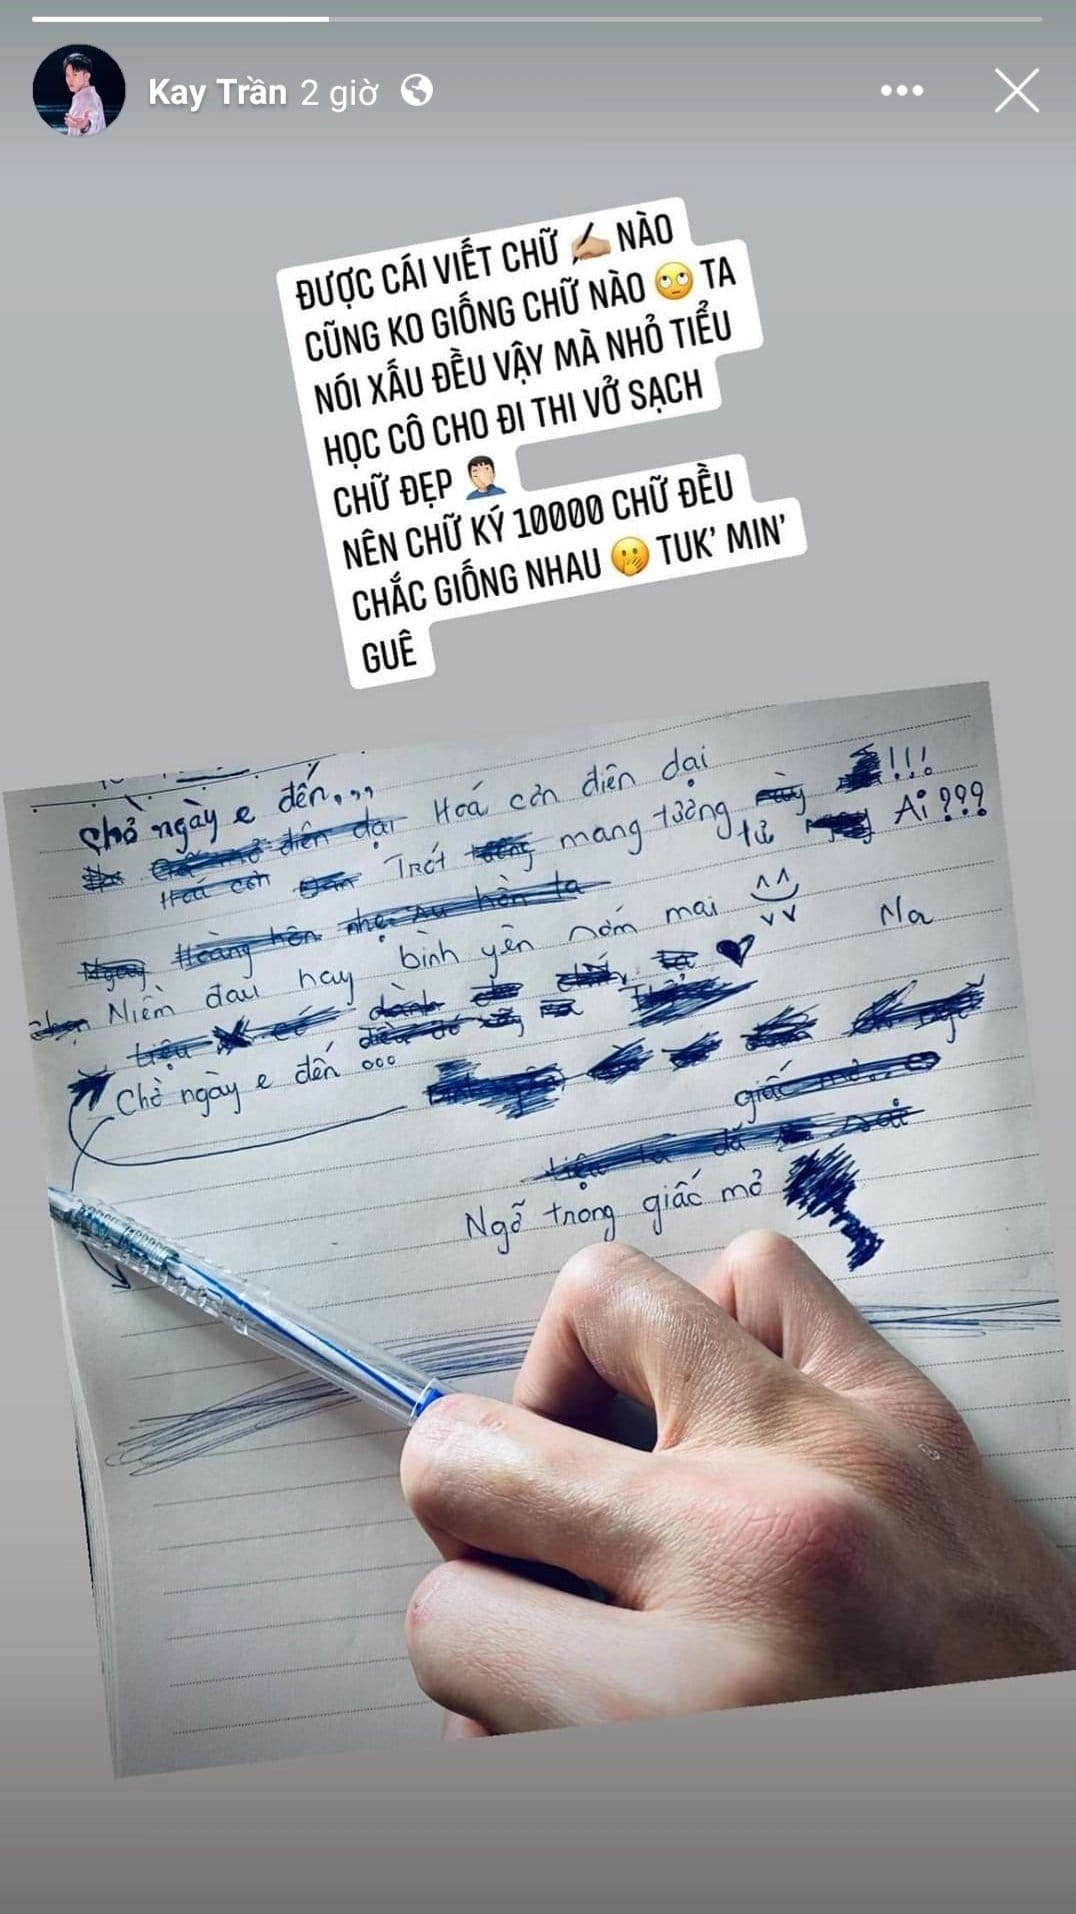 Kay Trần 2 giờ
ĐƯỢC CÁI VIẾT CHỮ ✍🏼 NÀO
CŨNG KO GIỐNG CHỮ NÀO 🙄 TA
NÓI XẤU ĐỀU VẬY MÀ NHỎ TIỂU
HỌC CÔ CHO ĐI THI VỞ SẠCH
CHỮ ĐẸP 🤦🏻‍♂️
NÊN CHỮ KÝ 10000 CHỮ ĐỀU
CHẮC GIỐNG NHAU 🤭 TUK’ MIN’
GUÊ
Chờ ngày e đến,,,
điên dại Hoá cơn điên dại !!!
Hoá cơn Trót mang tương tư Ai???
Hoàng hôn nhẹ ru hồn ta
Niềm đau hay bình yên sớm mai Na
Chờ ngày e đến ...
giấc mơ..
Ngỡ trong giấc mơ